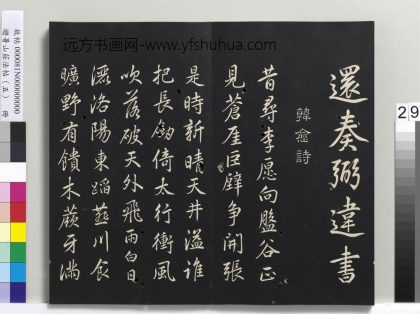 远方书画网-www.yfshuhua.com
還奏弼違書
韓愈詩
昔尋李愿向盤谷正
見蒼崖巨壁爭開張
是時新晴天井溢誰
把長劍倚太行衝風
吹落破天外飛雨白日
灑洛陽東蹈燕川食
曠野有饋木蕨牙滿
故帖 000081N000000000
避暑山莊法帖（五） 冊
29